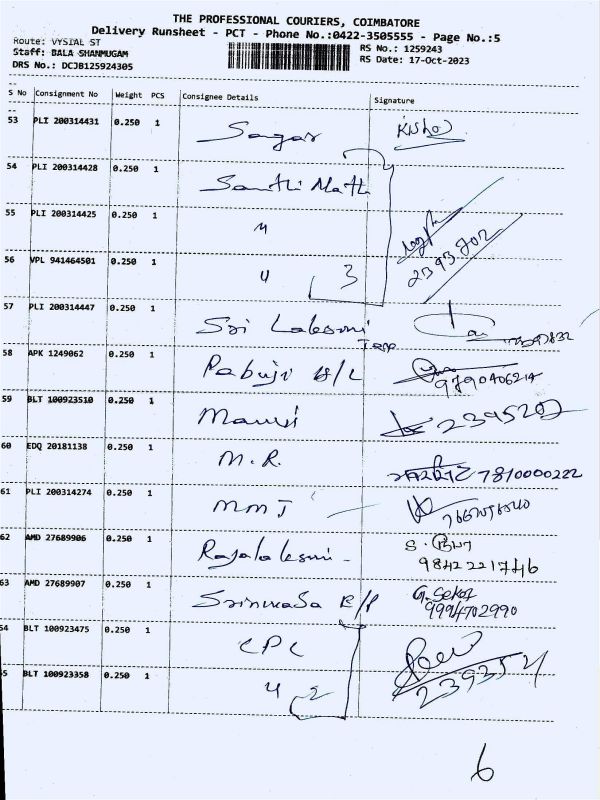 THE PROFESSIONAL COURIERS, COIMBATORE
Delivery Runsheet - PCT - Phone No.:0422-3505555 - Page No.:5
Route: VYSIAL ST
Staff: BALA SHANMUGAM
DRS No.: DCJB125924305
RS No.: 1259243
RS Date: 17-Oct-2023
S No Consignment No Weight PCS Consignee Details Signature
53 PLI 200314431 0.250 1 Sagar
54 PLI 200314428 0.250 1 Santhi Math
55 PLI 200314425 0.250 1 "
56 VPL 941464501 0.250 1 " 3
57 PLI 200314447 0.250 1 Sri Lakesmi
58 APK 1249062 0.250 1 Pabuji 9790406214
59 BLT 100923510 0.250 1 2395207
60 EDQ 20181138 0.250 1 M.R. 7810000222
61 PLI 200314274 0.250 1 MMJ
62 AMD 27689906 0.250 1 Rajalakesmi S. 9842221746
63 AMD 27689907 0.250 1 Srinivasa G. Sekar 9994702990
54 BLT 100923475 0.250 1 CPC
55 BLT 100923358 0.250 1 " 2
6